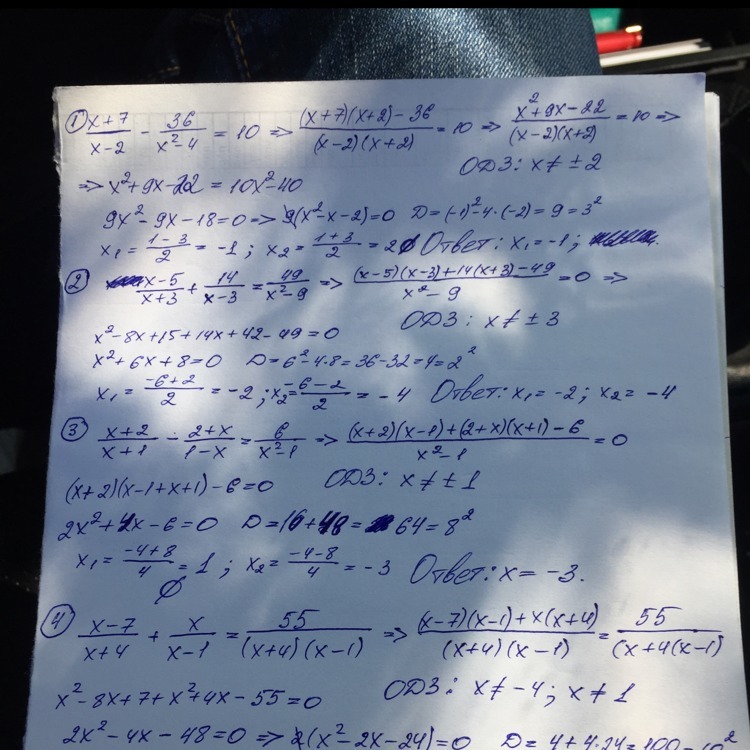 ① (x+7)/(x-2) - 36/(x²-4) = 10 => ((x+7)(x+2)-36)/((x-2)(x+2)) = 10 => (x²+9x-22)/((x-2)(x+2)) = 10 =>
ОДЗ: x ≠ ± 2
=> x²+9x-22 = 10x²-40
9x²-9x-18=0 => 9(x²-x-2)=0 D=(-1)²-4·(-2)=9=3²
x₁ = (1-3)/2 = -1; x₂ = (1+3)/2 = 2 ∅ Ответ: x₁=-1;
② (x-5)/(x+3) + 14/(x-3) = 49/(x²-9) => ((x-5)(x-3)+14(x+3)-49)/(x²-9) = 0 =>
ОДЗ: x ≠ ± 3
x²-8x+15+14x+42-49=0
x²+6x+8=0 D=6²-4·8=36-32=4=2²
x₁ = (-6+2)/2 = -2; x₂ = (-6-2)/2 = -4 Ответ: x₁=-2; x₂=-4
③ (x+2)/(x+1) - (2+x)/(1-x) = 6/(x²-1) => ((x+2)(x-1)+(2+x)(x+1)-6)/(x²-1) = 0
(x+2)(x-1+x+1)-6=0 ОДЗ: x ≠ ± 1
2x²+4x-6=0 D=16+48=64=8²
x₁ = (-4+8)/4 = 1; x₂ = (-4-8)/4 = -3 Ответ: x=-3.
∅
④ (x-7)/(x+4) + x/(x-1) = 55/((x+4)(x-1)) => ((x-7)(x-1)+x(x+4))/((x+4)(x-1)) = 55/(x+4(x-1)
x²-8x+7+x²+4x-55=0 ОДЗ: x ≠ -4; x ≠ 1
2x²-4x-48=0 => 2(x²-2x-24)=0 D=4+4·24=100=10²